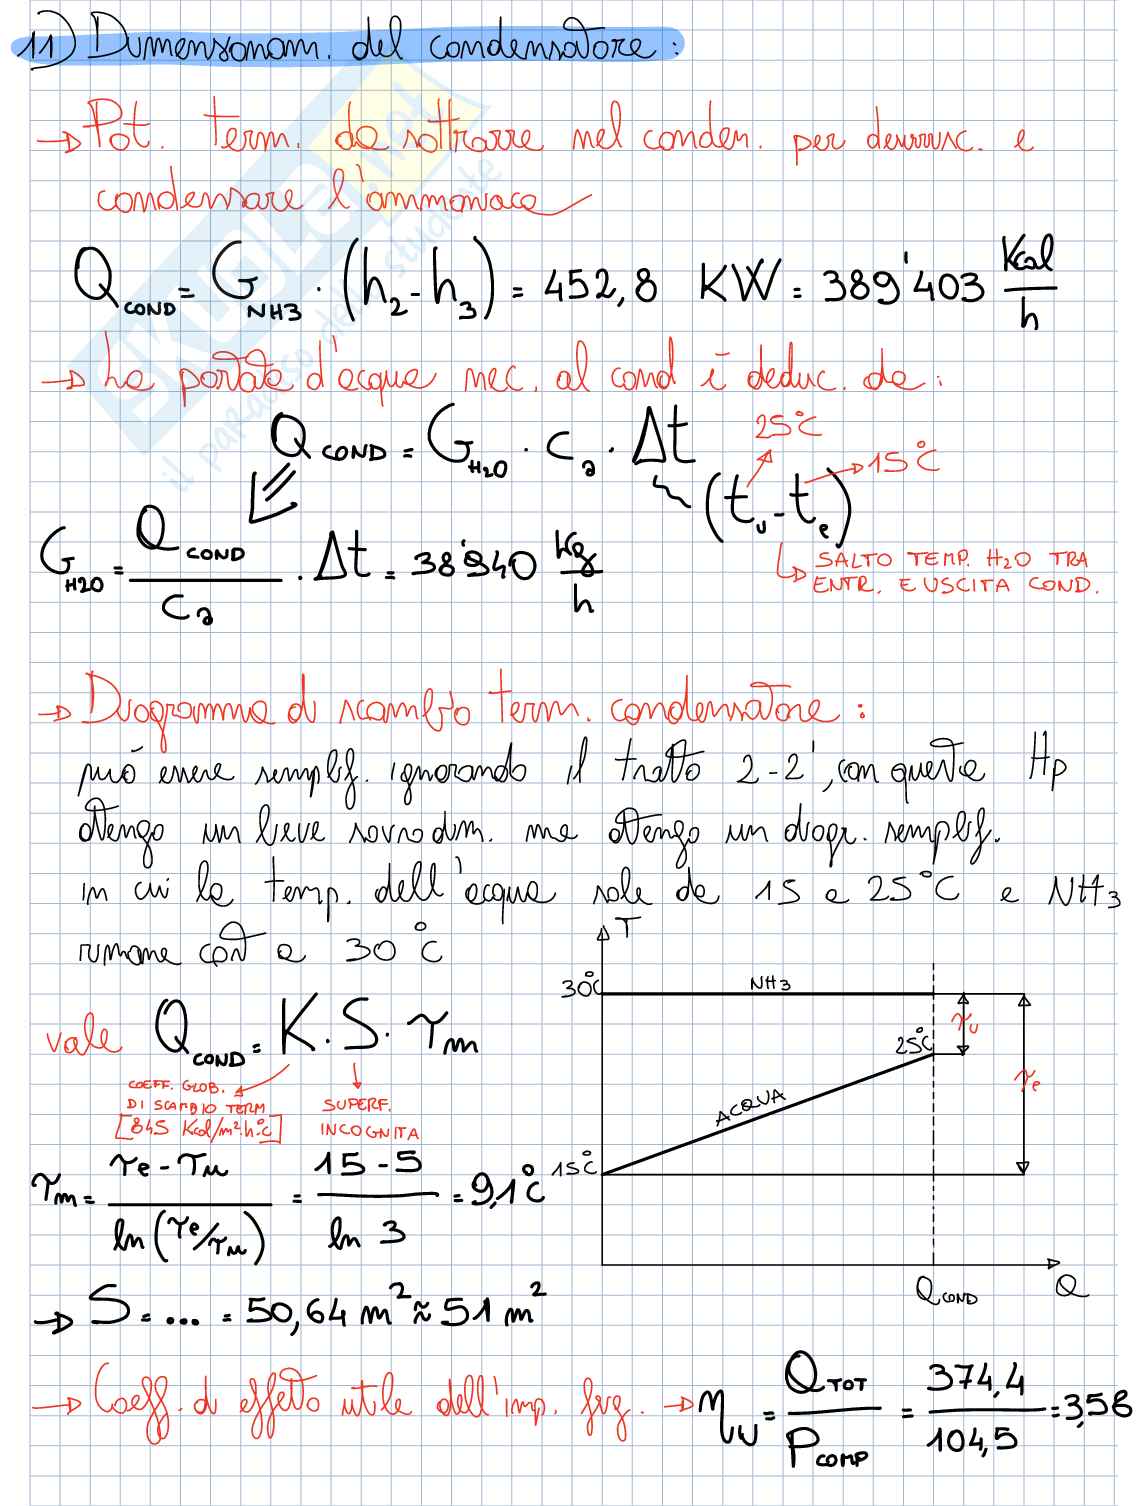 11) Dimensionam. del condensatore:
→ Pot. term. da sottrarre nel conden. per desurrisc. e
condensare l'ammoniaca
Q COND = G NH3 · (h2 - h3) = 452,8 KW = 389'403 Kcal/h
→ La portata d'acqua nec. al cond è deduc. da:
Q COND = G H2O · Ca · Δt
25°C
(tu - te) → 15°C
G H2O = Q COND / Ca · Δt = 38'940 Kg/h
↳ SALTO TEMP. H2O TRA
ENTR. E USCITA COND.
→ Diagramma di scambio term. condensatore:
può essere semplif. ignorando il tratto 2-2', con questa Hp
ottengo un lieve sovradim. ma ottengo un diagr. semplif.
in cui la temp. dell'acqua sale da 15 a 25°C e NH3
rimane cost a 30°C
vale Q COND = K · S · τm
COEFF. GLOB.
DI SCAMBIO TERM
[845 Kcal/m²·h·°C]
SUPERF.
INCOGNITA
τm = τe - τu / ln(τe/τu) = 15 - 5 / ln 3 = 9,1°C
→ S = ... = 50,64 m² ≈ 51 m²
T
30°C
NH3
τu
25°C
τe
ACQUA
15°C
Q COND
Q
→ Coeff. di effetto utile dell'imp. frig. → ηu = Q TOT / P COMP = 374,4 / 104,5 = 3,58
SKUOLA.net
il paradiso dello studente